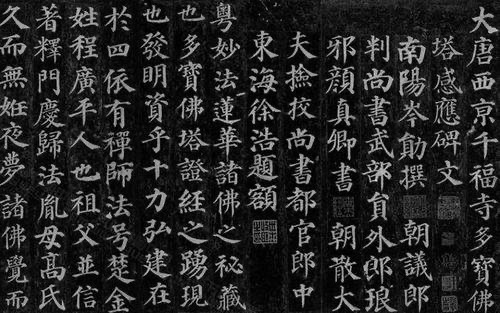 大唐西京千福寺多寶佛
塔感應碑文
南陽岑勛撰 朝議郎
判尚書武部員外郎琅
邪顏真卿書 朝散大
夫撿挍尚書都官郎中
東海徐浩題額
粵妙法蓮華諸佛之祕藏
也多寶佛塔證經之踴現
也發明資乎十力弘建在
於四依有禪師法号楚金
姓程廣平人也祖父並信
著釋門慶歸法胤母高氏
久而無姙夜夢諸佛覺而